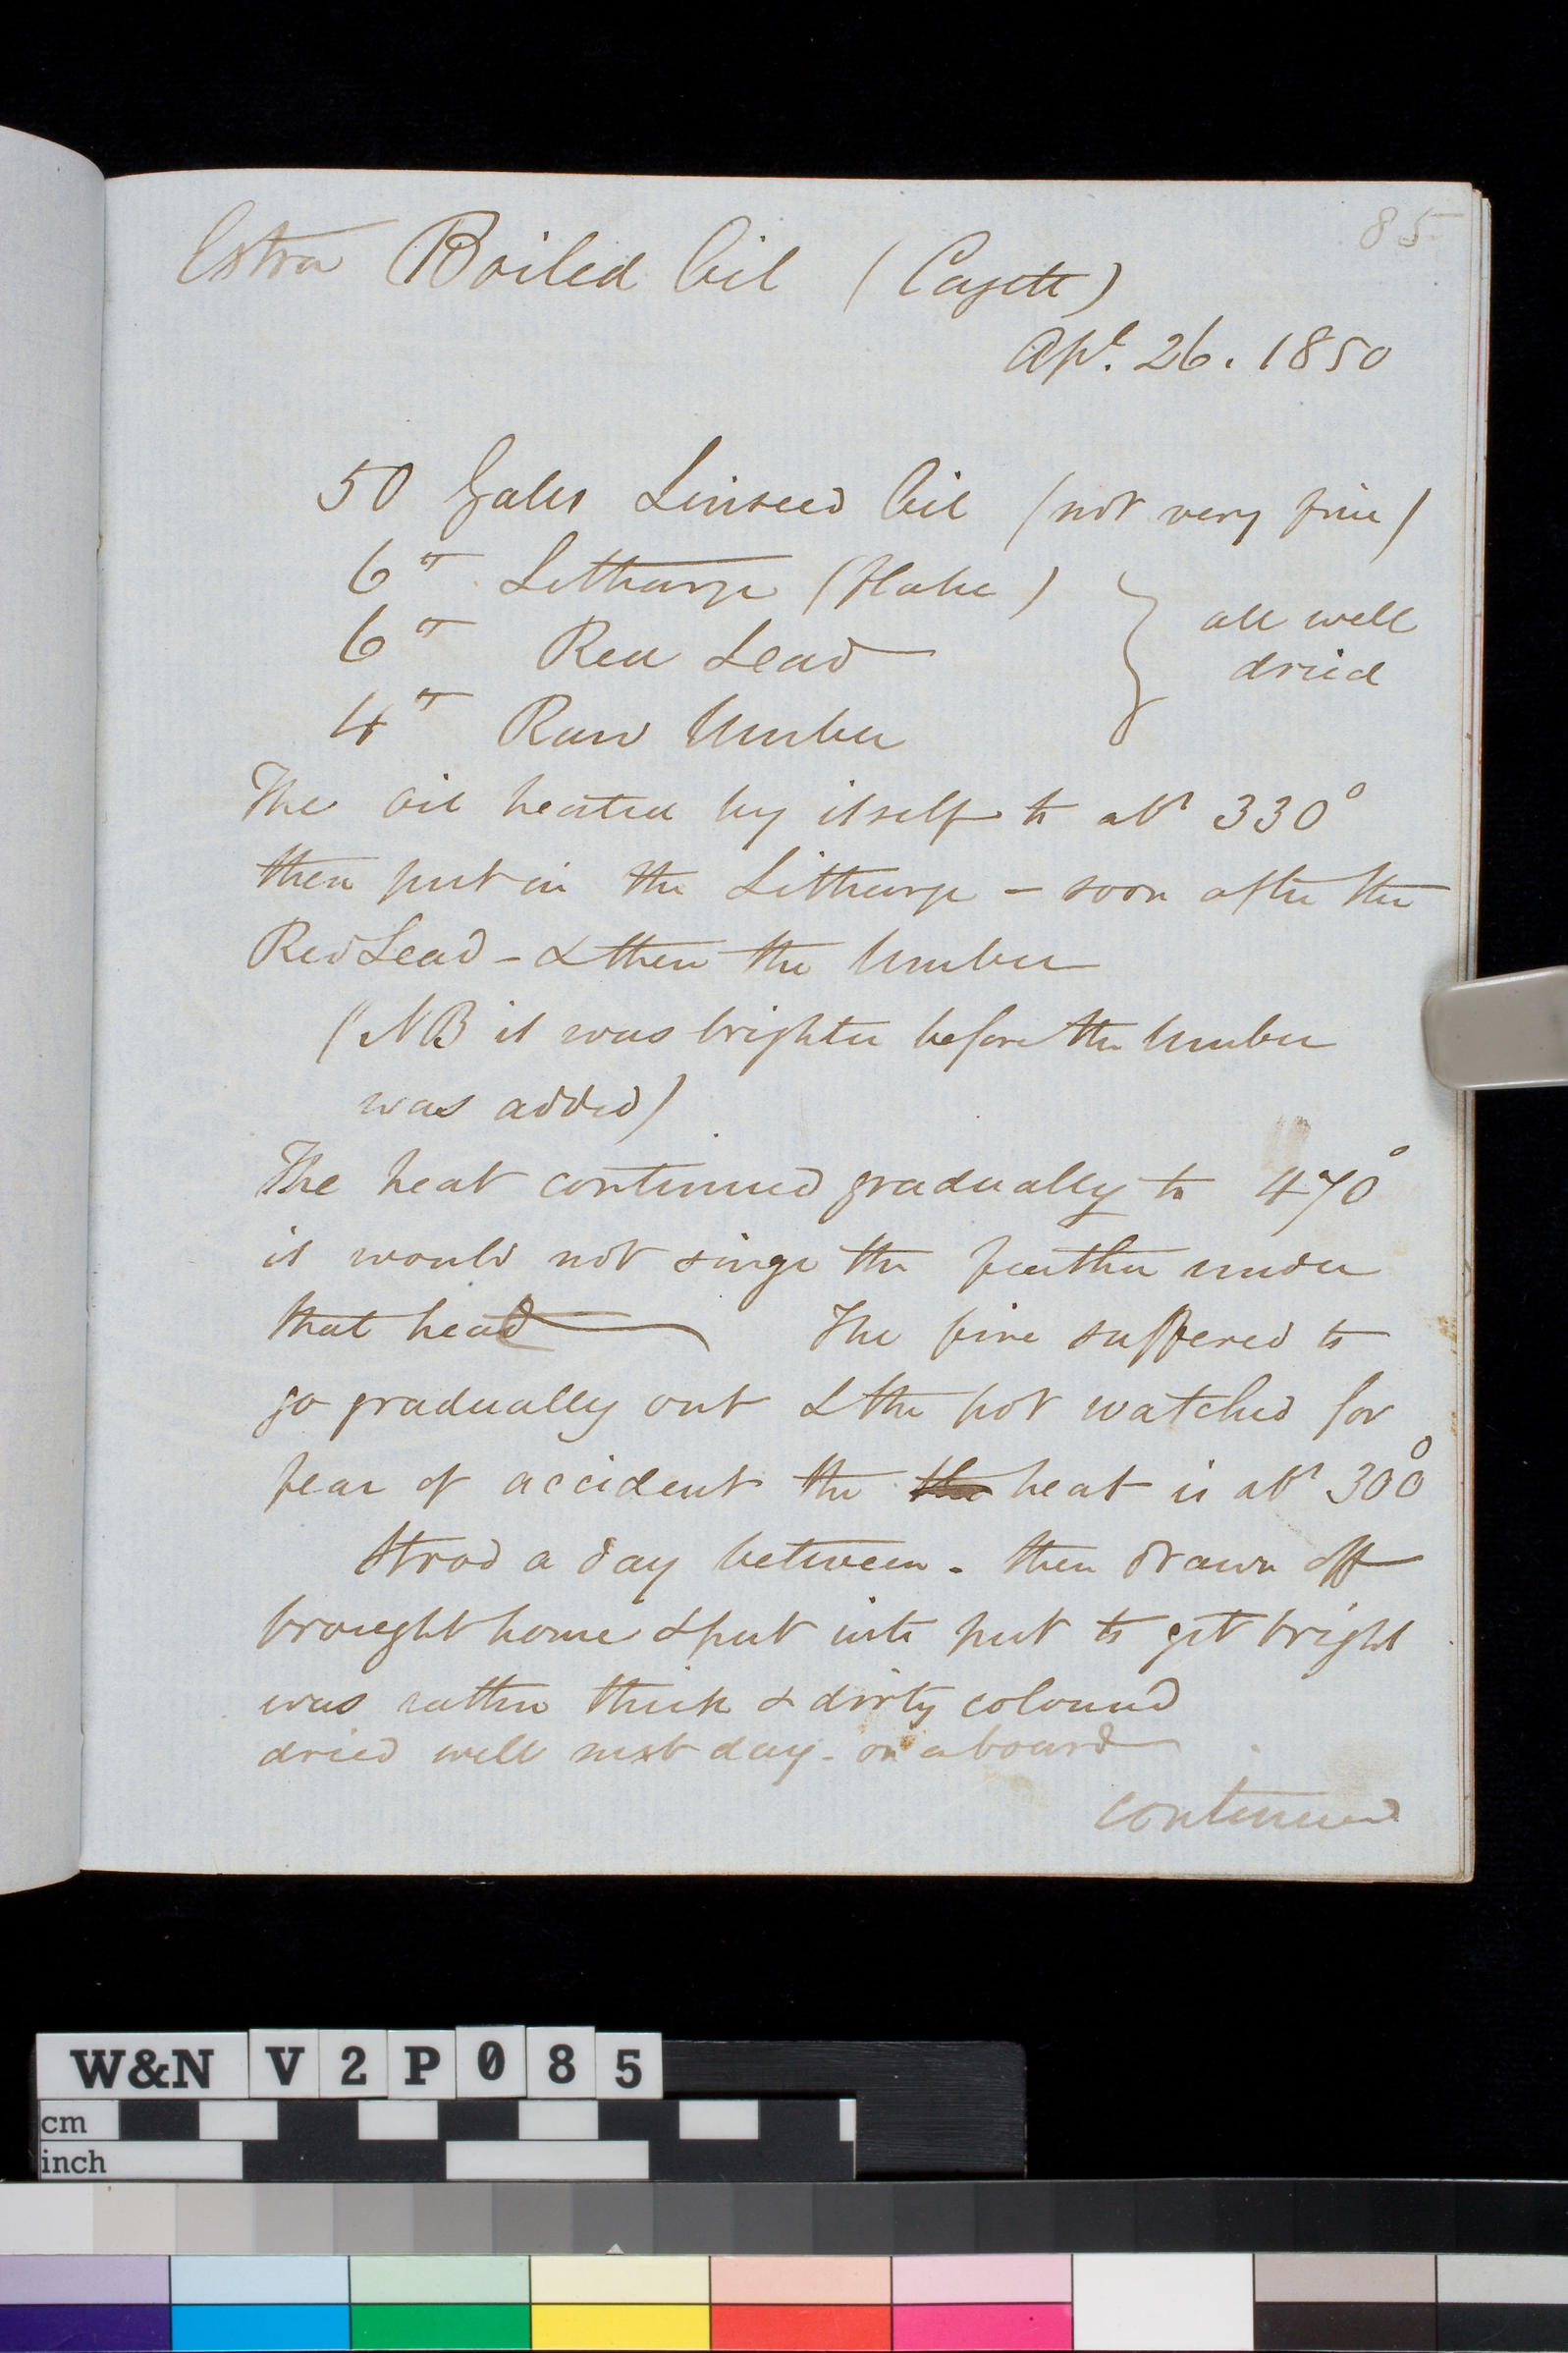 85
Extra Boiled Oil (Cazett)
Apl. 26. 1850
50 Galls Linseed Oil (not very fine)
6 lb Litharge (flake)
6 lb Red Lead
all well
dried
4 lb Raw Umber
The Oil heated by itself to abt 330°
then put in the Litharge - soon after the
Red Lead - & then the Umber
(NB it was brighter before the Umber
was added)
The heat continued gradually to 470°
it would not singe the feather under
that heat The fire suffered to
go gradually out & the pot watched for
fear of accident the the heat is abt 300°
Stood a day between. then drawn off
brought home & put into put to get bright
was rather thick & dirty coloured
dried well next day - on a board
continued
W&N V2P085
cm
inch